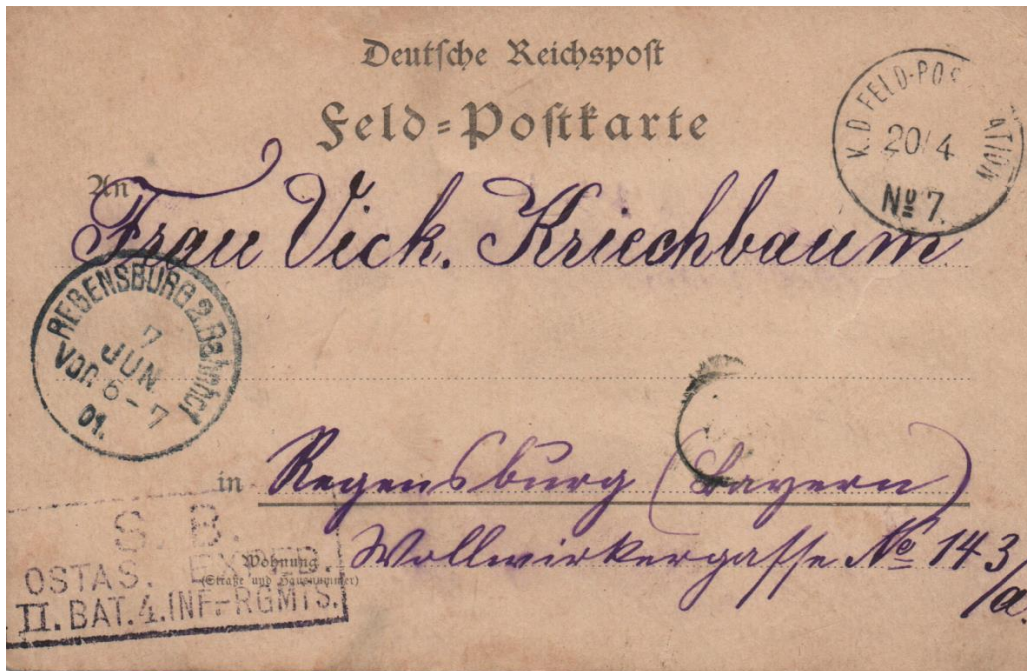 Deutsche Reichspost
Feld=Postkarte
K.D. FELD-POS ATION
20/4
No 7.
An
Frau Vick. Kriechbaum
REGENSBURG 2. Bahnhof
7
JUN
Vor. 6-7
01.
in Regensburg (Bayern)
Wohnung
(Straße und Hausnummer)
Wollwirkergasse No 143/a.
S. B.
OSTAS. EXP.
II. BAT. 4. INF-RGMTS.